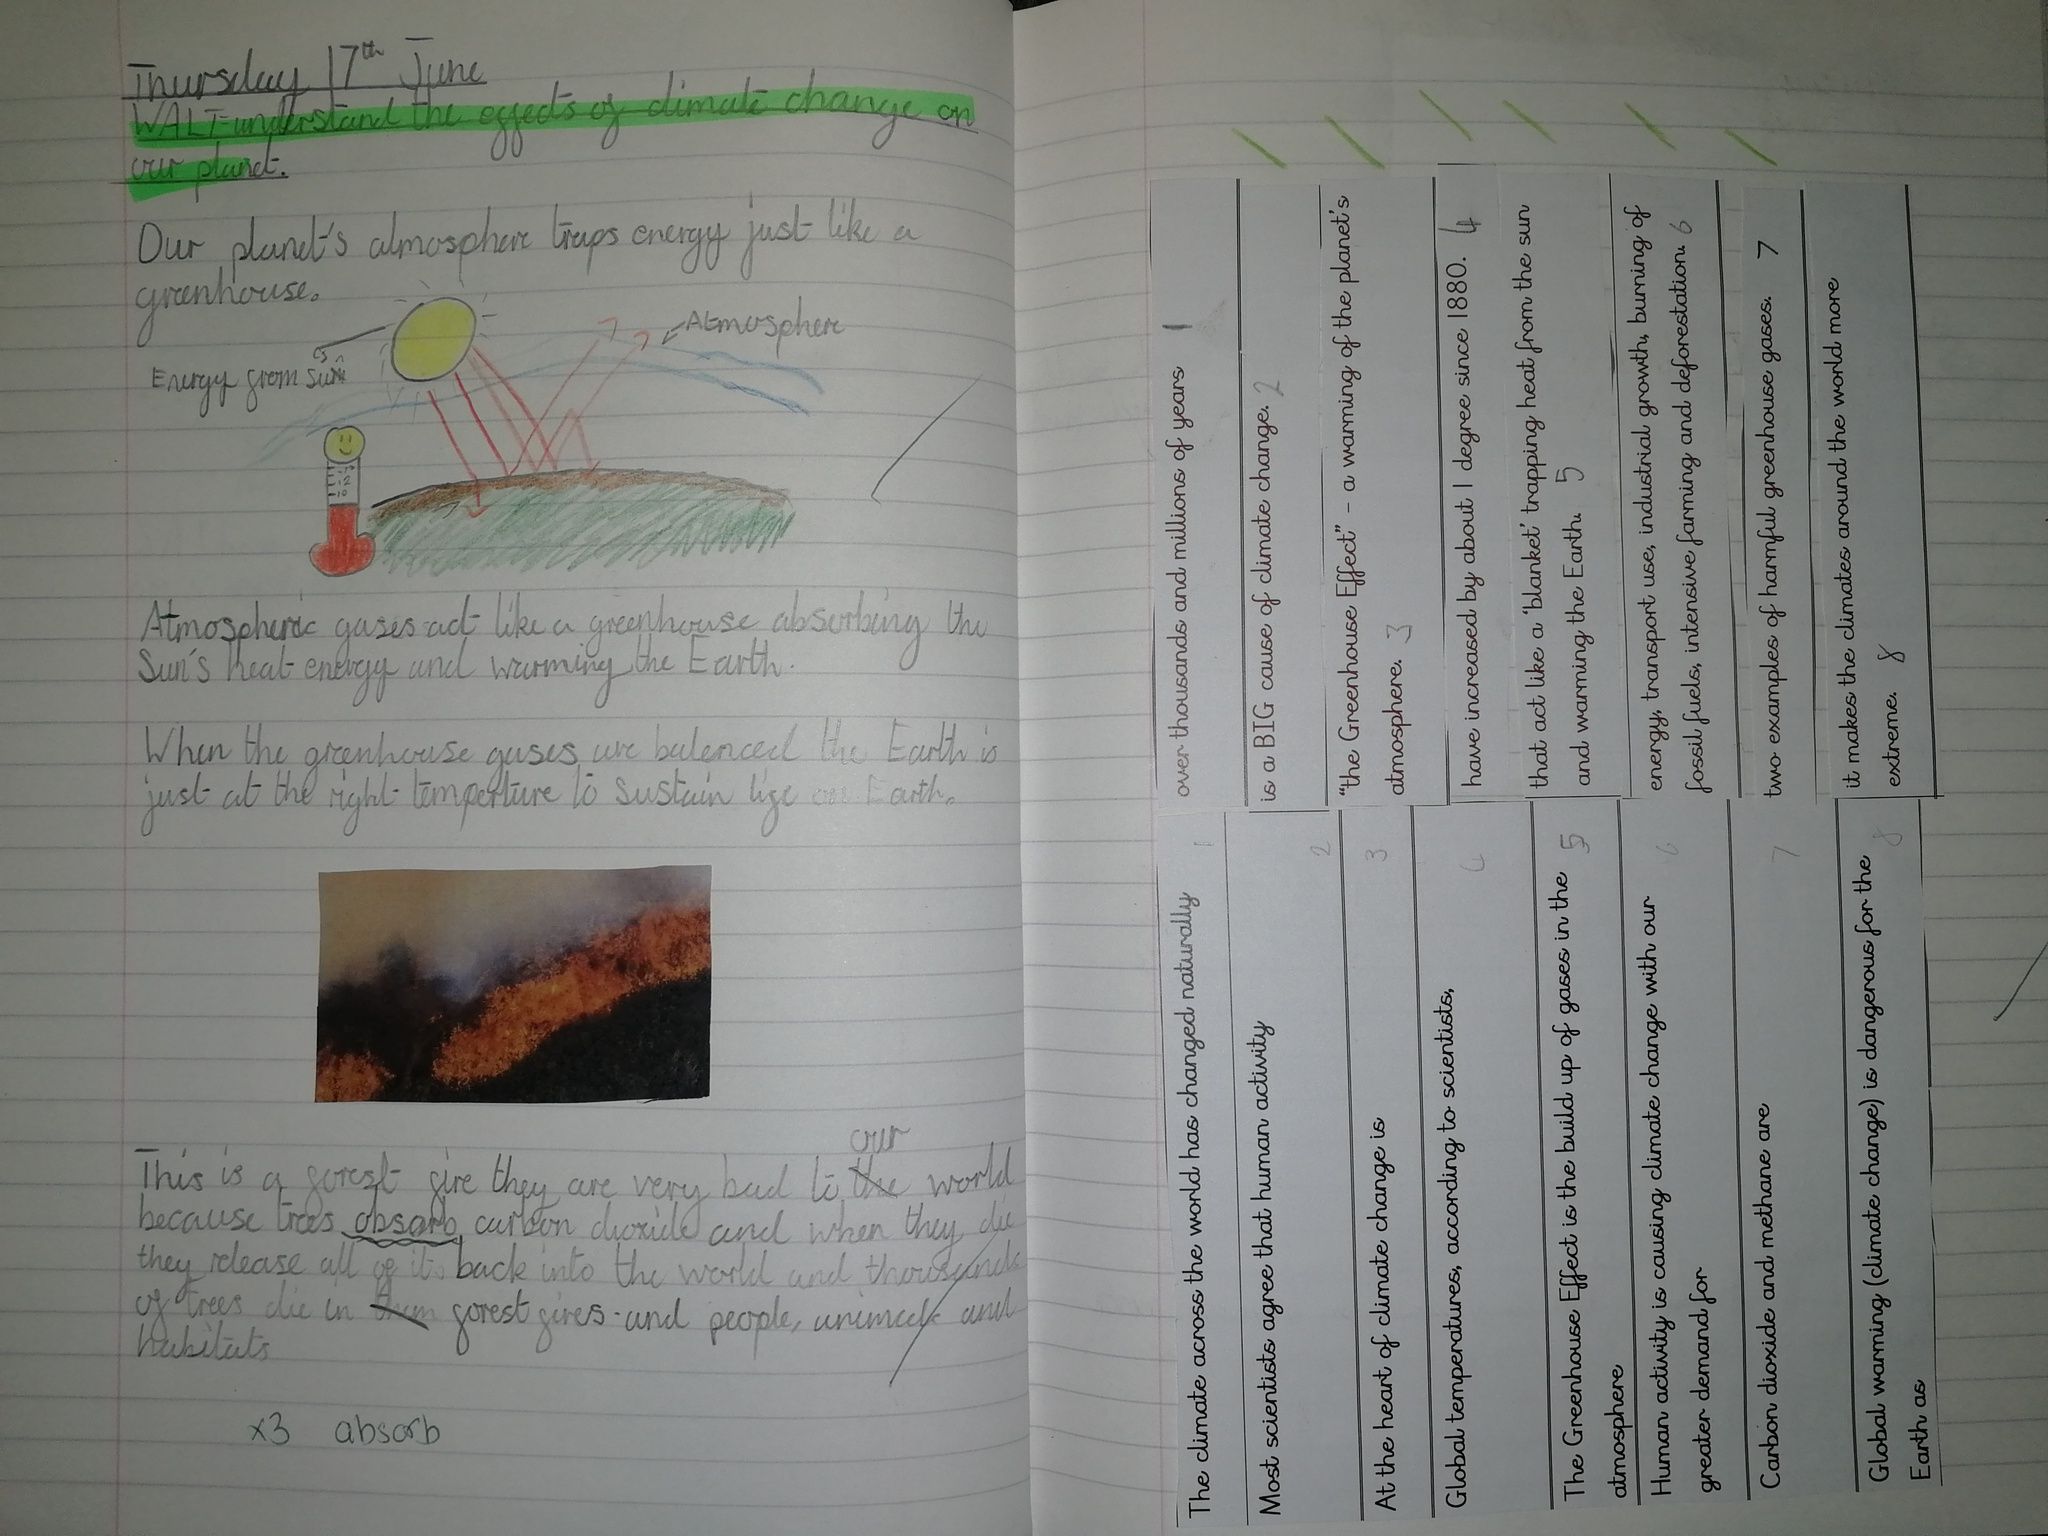 Thursday 17th June
WALT-understand the effects of climate change on
our planet.
Our planet's atmosphere traps energy just like a
greenhouse.
Atmosphere
Energy from Sun
12
10
Atmospheric gases act like a greenhouse absorbing the
Sun's heat energy and warming the Earth.
When the greenhouse gases are balenced the Earth is
just at the right temperture to sustain life on Earth.
our
This is a forest fire they are very bad to the world
because trees absorb carbon dioxide and when they die
they release all of it back into the world and thousands
of trees die in them forest fires and people, animals and
habitats
x3 absorb
The climate across the world has changed naturally 1
over thousands and millions of years 1
Most scientists agree that human activity 2
is a BIG cause of climate change. 2
At the heart of climate change is 3
"the Greenhouse Effect" - a warming of the planet's
atmosphere. 3
Global temperatures, according to scientists, 4
have increased by about 1 degree since 1880. 4
The Greenhouse Effect is the build up of gases in the 5
atmosphere
that act like a 'blanket' trapping heat from the sun
and warming the Earth. 5
Human activity is causing climate change with our 6
greater demand for
energy, transport use, industrial growth, burning of
fossil fuels, intensive farming and deforestation. 6
Carbon dioxide and methane are 7
two examples of harmful greenhouse gases. 7
Global warming (climate change) is dangerous for the 8
Earth as
it makes the climates around the world more
extreme. 8